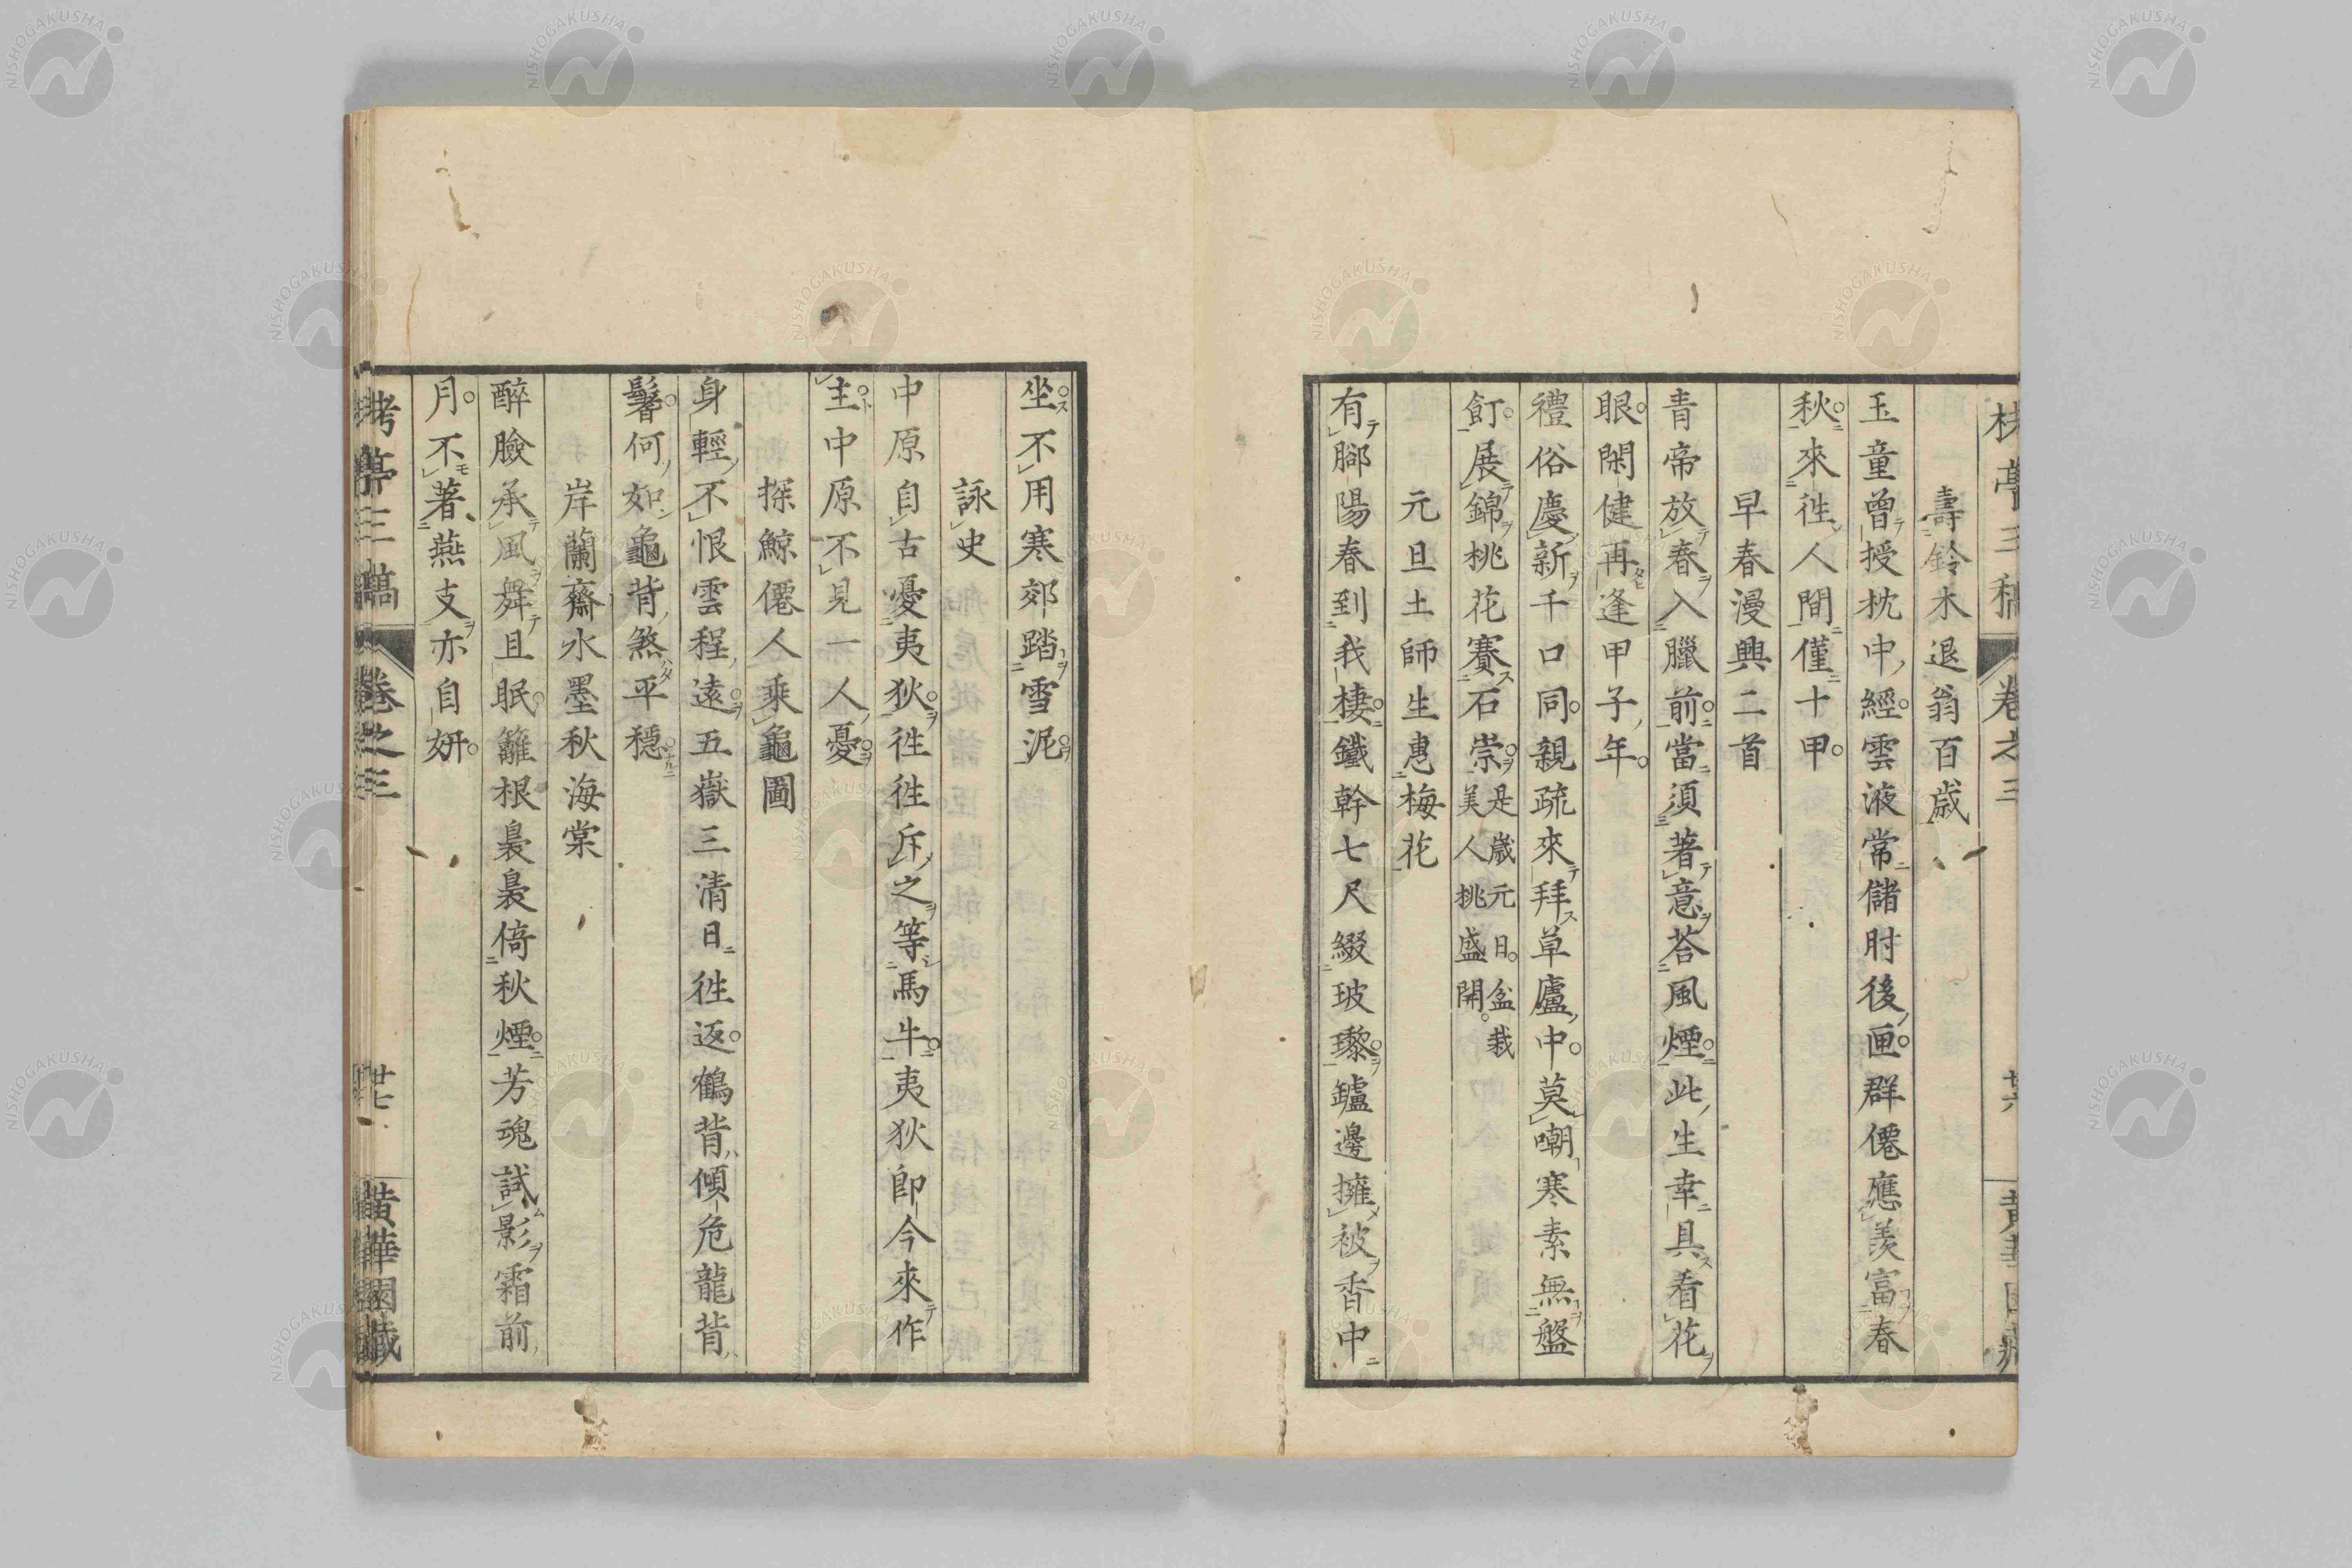 壽鈴木退翁百歳
玉童曾授枕中經雲液常儲肘後匣群僊應羨富春
秋來往人間僅十甲
早春漫興二首
青帝放春入臘前當須著意荅風煙此生幸具看花
眼閑健再逢甲子年
禮俗慶新千口同親疏來拜草廬中莫嘲寒素無盤
飣展錦桃花賽石崇是歳元日盆栽美人挑盛開
元旦土師生惠梅花
有脚陽春到我棲鐵幹七尺綴玻瓈鑪邊擁被香中
坐不用寒郊踏雪泥
詠史
中原自古憂夷狄往往斥之等馬牛夷狄即今來作
主中原不見一人憂
探鯨僊人乘龜圖
身輕不恨雲程遠五嶽三清日往返鶴背傾危龍背
鬈何如龜背煞平穩
岸蘭齋水墨秋海棠
醉臉承風舞且眠籬根裊裊倚秋煙芳魂試影霜前
月不著燕支亦自妍
亭三稿 卷之三 廿七